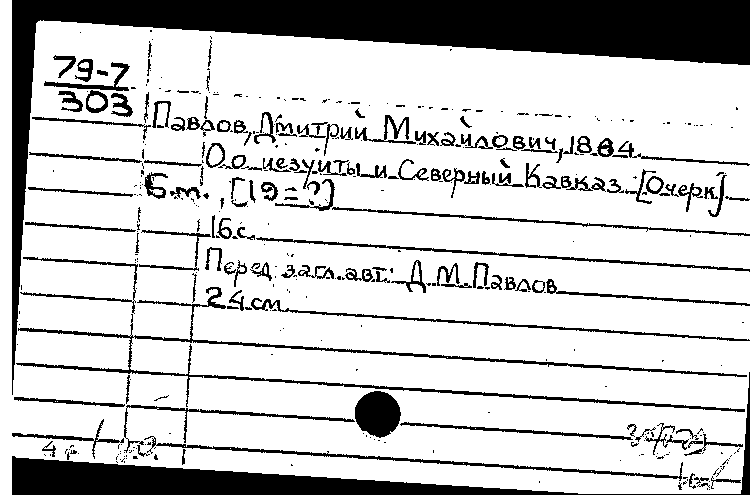 79-7
303
Павлов, Дмитрий Михайлович, 1884.
О.о. иезуиты и Северный Кавказ. [Очерк].
Б.м., [19=?]
16 с.
Перед загл. авт.: Д. М. Павлов
24 см.